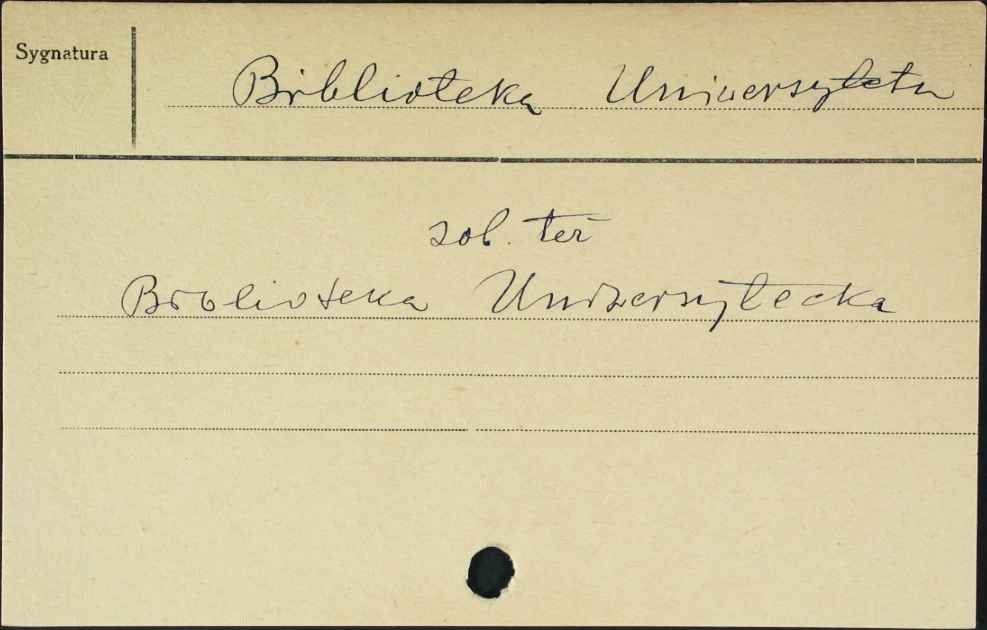 Sygnatura
Biblioteka Uniwersytetu
zob. też
Biblioteka Uniwersytecka